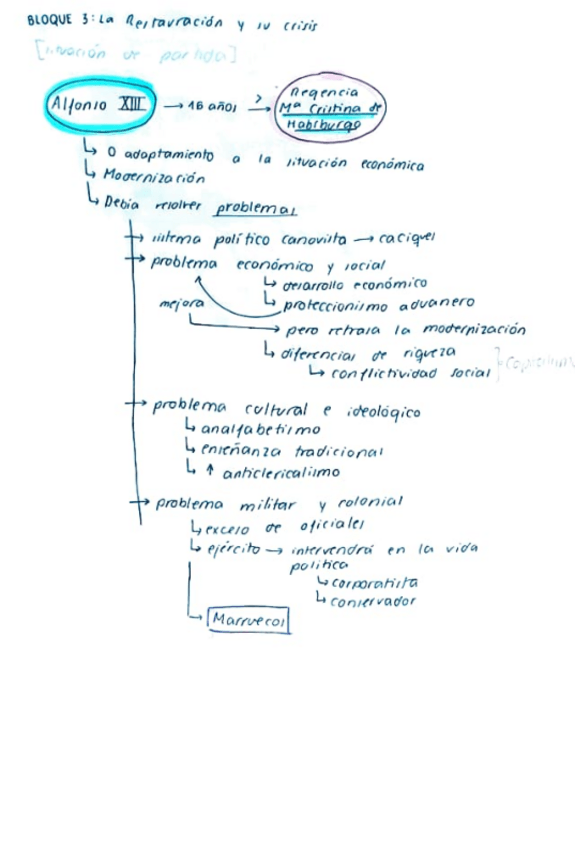 BLOQUE 3: La Restauración y su crisis
[situación de partida]
Alfonso XIII → 16 años → Regencia
Mª Cristina de
Habsburgo
↳ O adaptamiento a la situación económica
↳ Modernización
↳ Debía resolver problemas
→ sistema político canovista → caciques
→ problema económico y social
↳ desarrollo económico
mejora ↳ proteccionismo aduanero
→ pero retrasa la modernización
↳ diferencias de riqueza
↳ conflictividad social
→ problema cultural e ideológico
↳ analfabetismo
↳ enseñanza tradicional
↳ ↑ anticlericalismo
→ problema militar y colonial
↳ exceso de oficiales
↳ ejército → intervendrá en la vida
política
↳ corporatista
↳ conservador
Marruecos